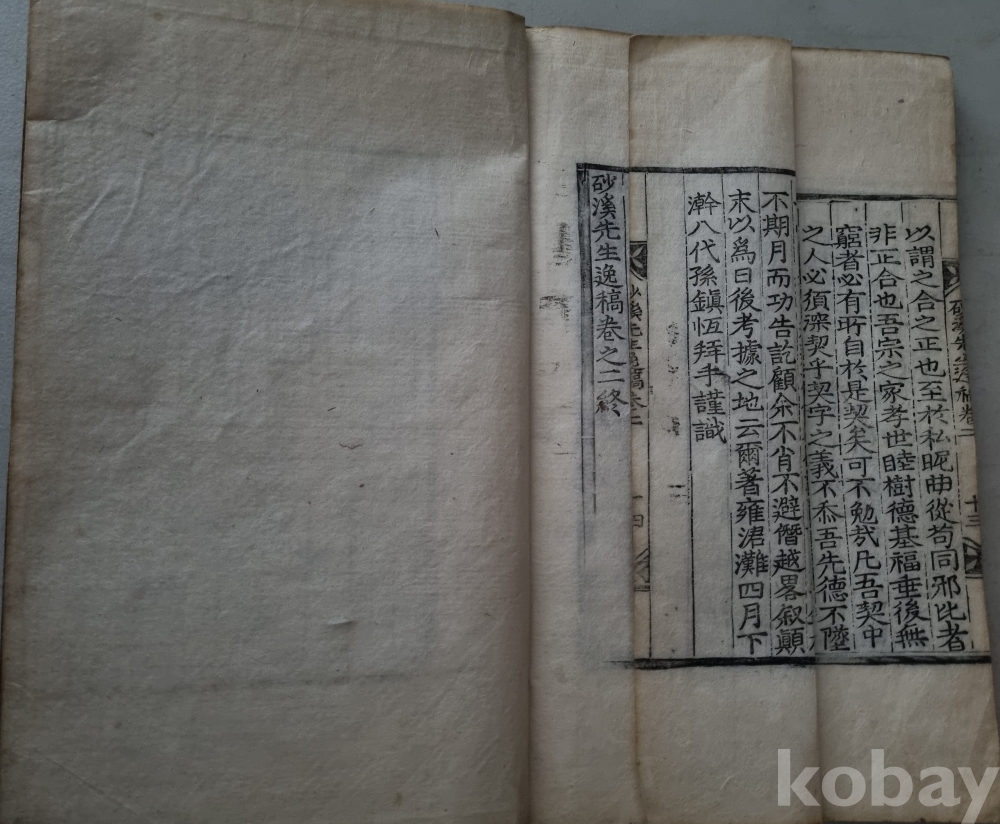 以謂之合之正也至於私昵曲從苟同邪比者
非正合也吾宗之家孝世睦樹德基福垂後無
窮者必有所自於是契矣可不勉哉凡吾契中
之人必須深契乎契字之義不忝吾先德不墜
不期月而功告訖顧余不肖不避僭越畧敘顚
末以爲日後考據之地云爾著雍涒灘四月下
澣八代孫鎭恆拜手謹識
砂溪先生逸稿卷之二終
砂溪先生逸稿卷二
十三
十四
kobay